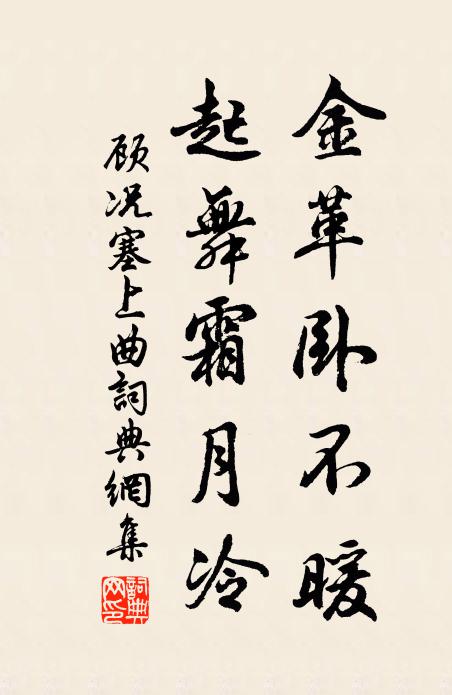 金革卧不暖
起舞霜月冷
顾况塞上曲詞典網集
詞典網印